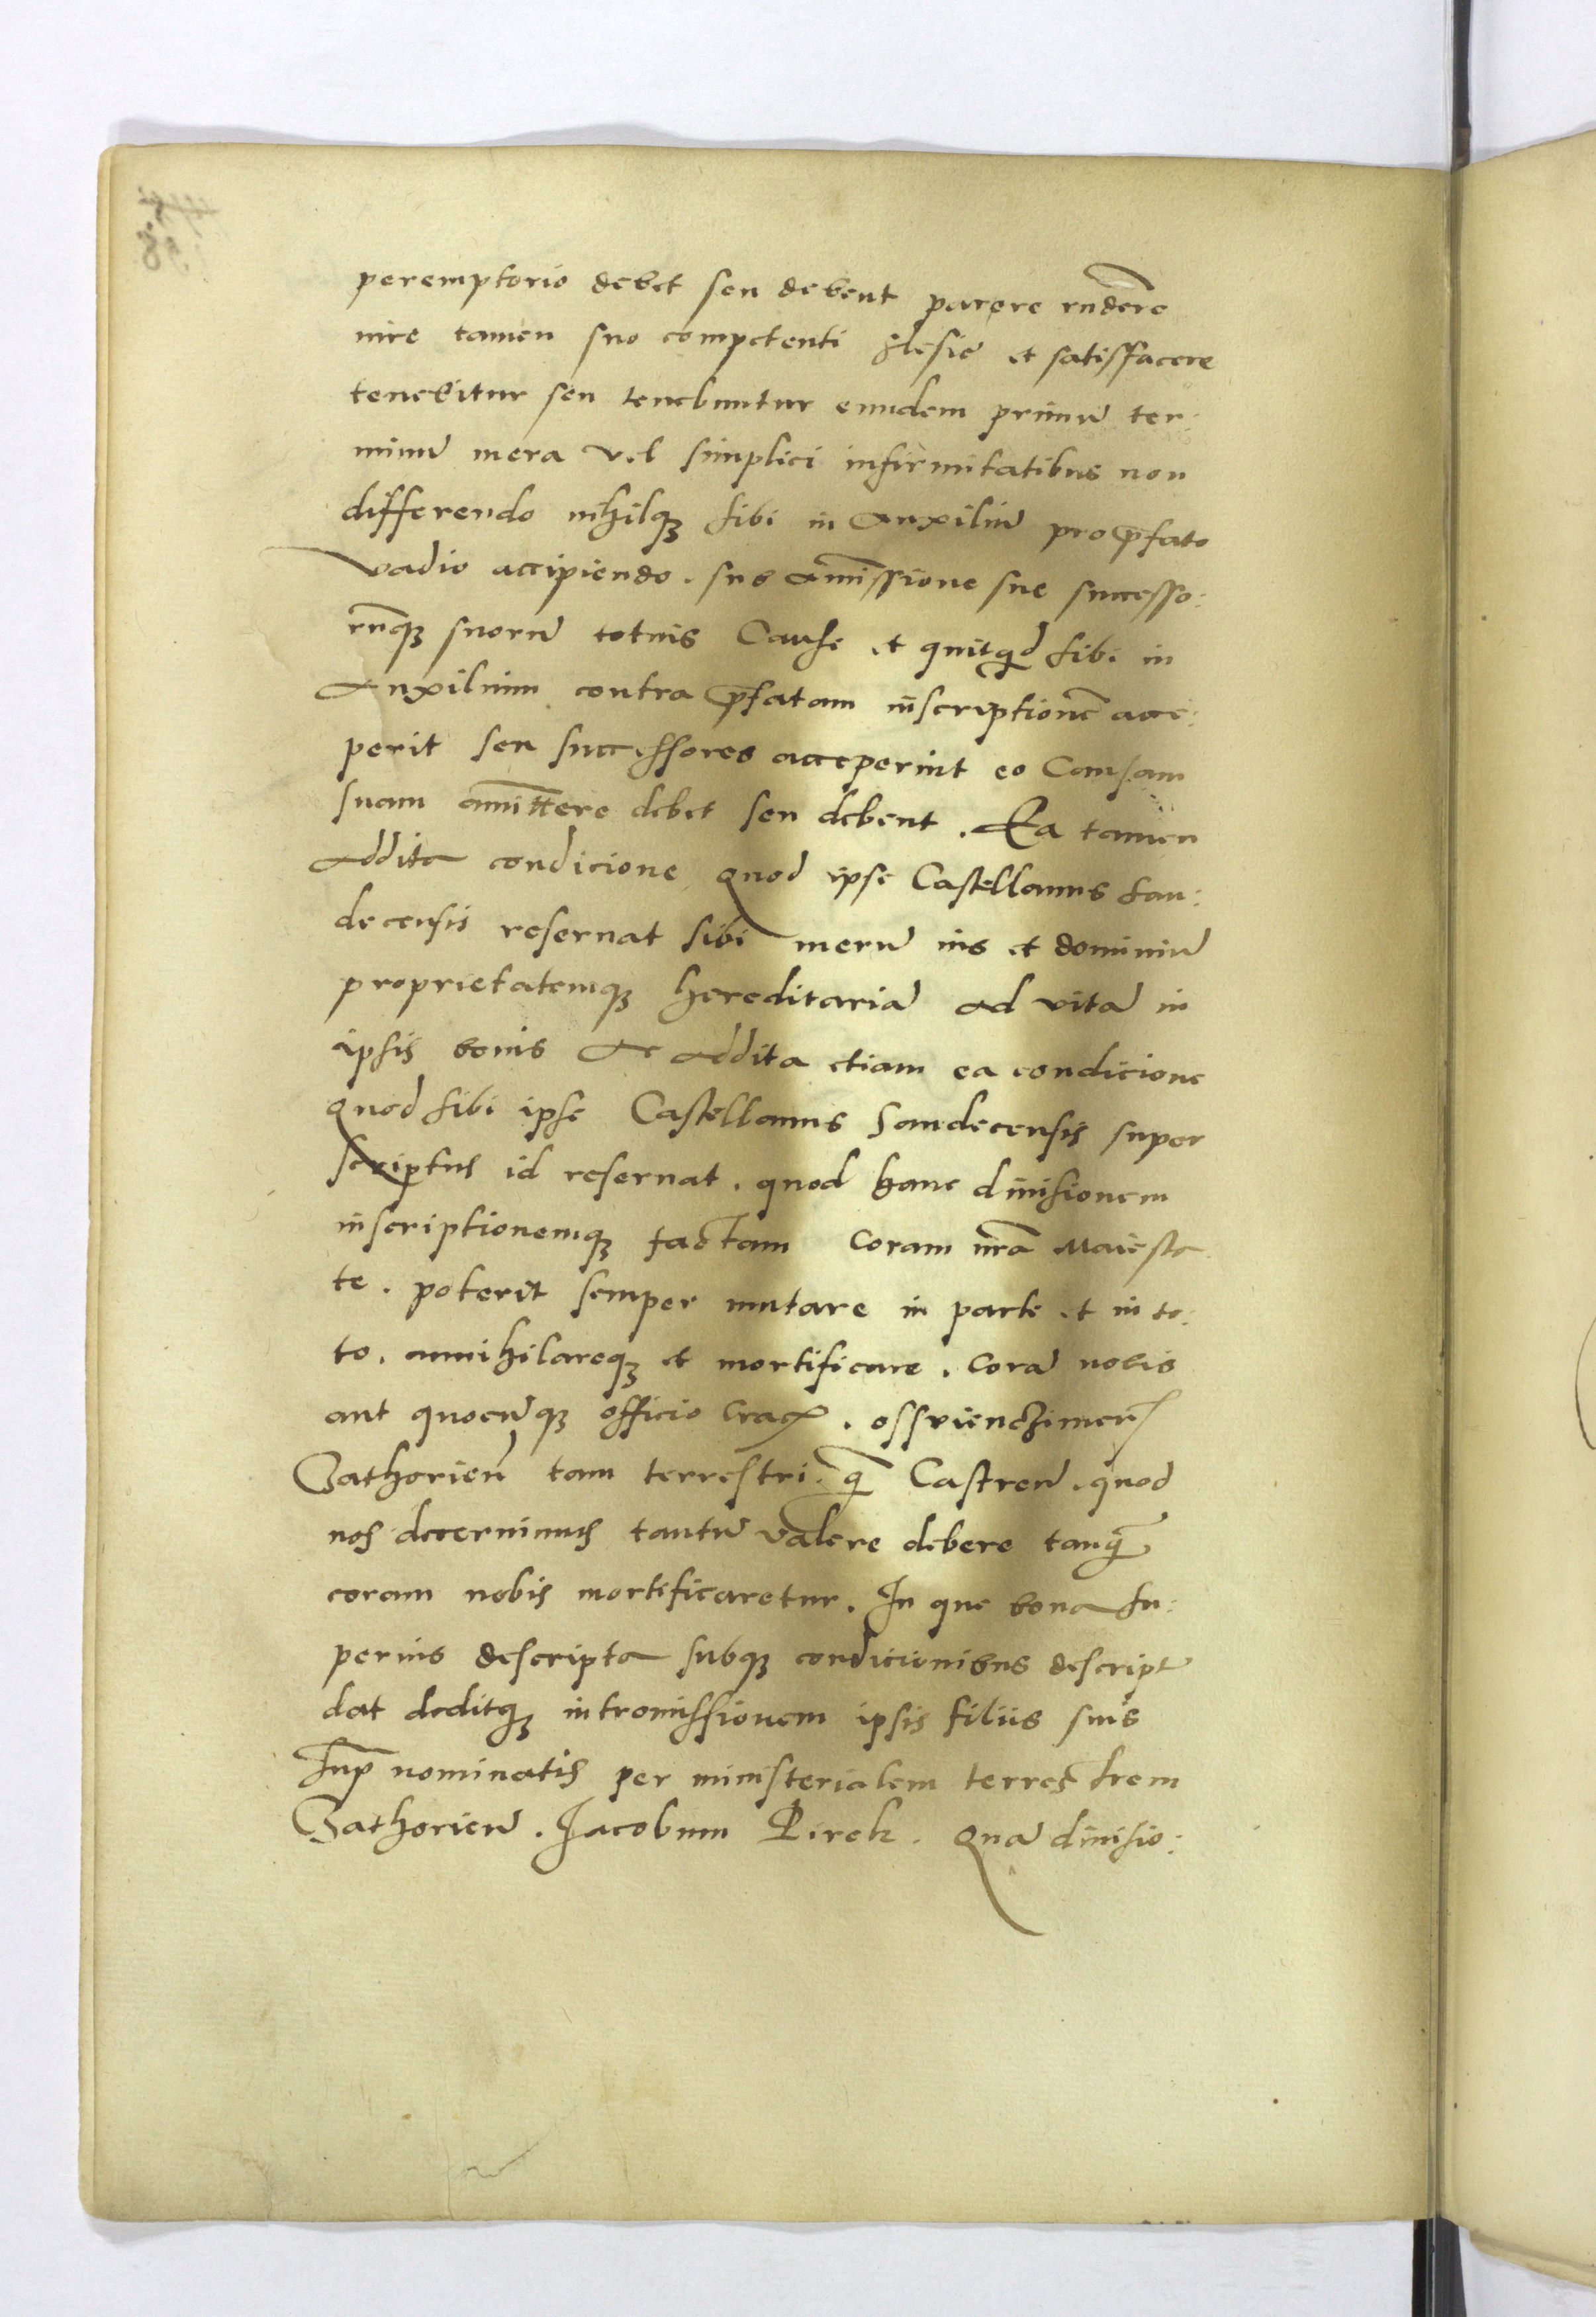 peremptorio debet seu debent parere rndere
iure tamen suo competenti et satisfacere
tenebitur seu tenebuntur eundem primu ter:
minu mera vel simplici infirmitatibus non
differendo nihilqz sibi in Auxiliu pro pfato
vadio accipiendo. sub amissione sue successo:
ruqz suoru totius Cause et quitqd sibi in
Auxilium contra pfatam inscriptione acce:
perit seu successores acceperint eo Causam
suam amittere debet seu debent. Ea tamen
Addita condicione quod ipse Castellanus San:
decensis reseruat sibi meru ius et dominiu
proprietatemqz hereditaria ad vita in
ipsis bonis Ac Addita etiam ea condicione
quod sibi ipse Castellanus Sandecensis super
scriptus id reseruat. quod hanc diuisionem
inscriptionemqz factam coram nra Maiesta
te. poterit semper mutare in parte et in to:
to. annihilareqz et mortificare. cora nobis
aut quocuqz officio Crac. osswienczimen
Zathorien tam terrestri. q Castren. quod
nos decernimus tantu valere debere tanq
coram nobis mortificaretur. In que bona su:
perius descripta subqz condicionibus descript
dat deditqz intromissionem ipsis filiis suis
sup nominatis per ministerialem terrestrem
Zathorien. Jacobum Pirek. Qua diuisio: